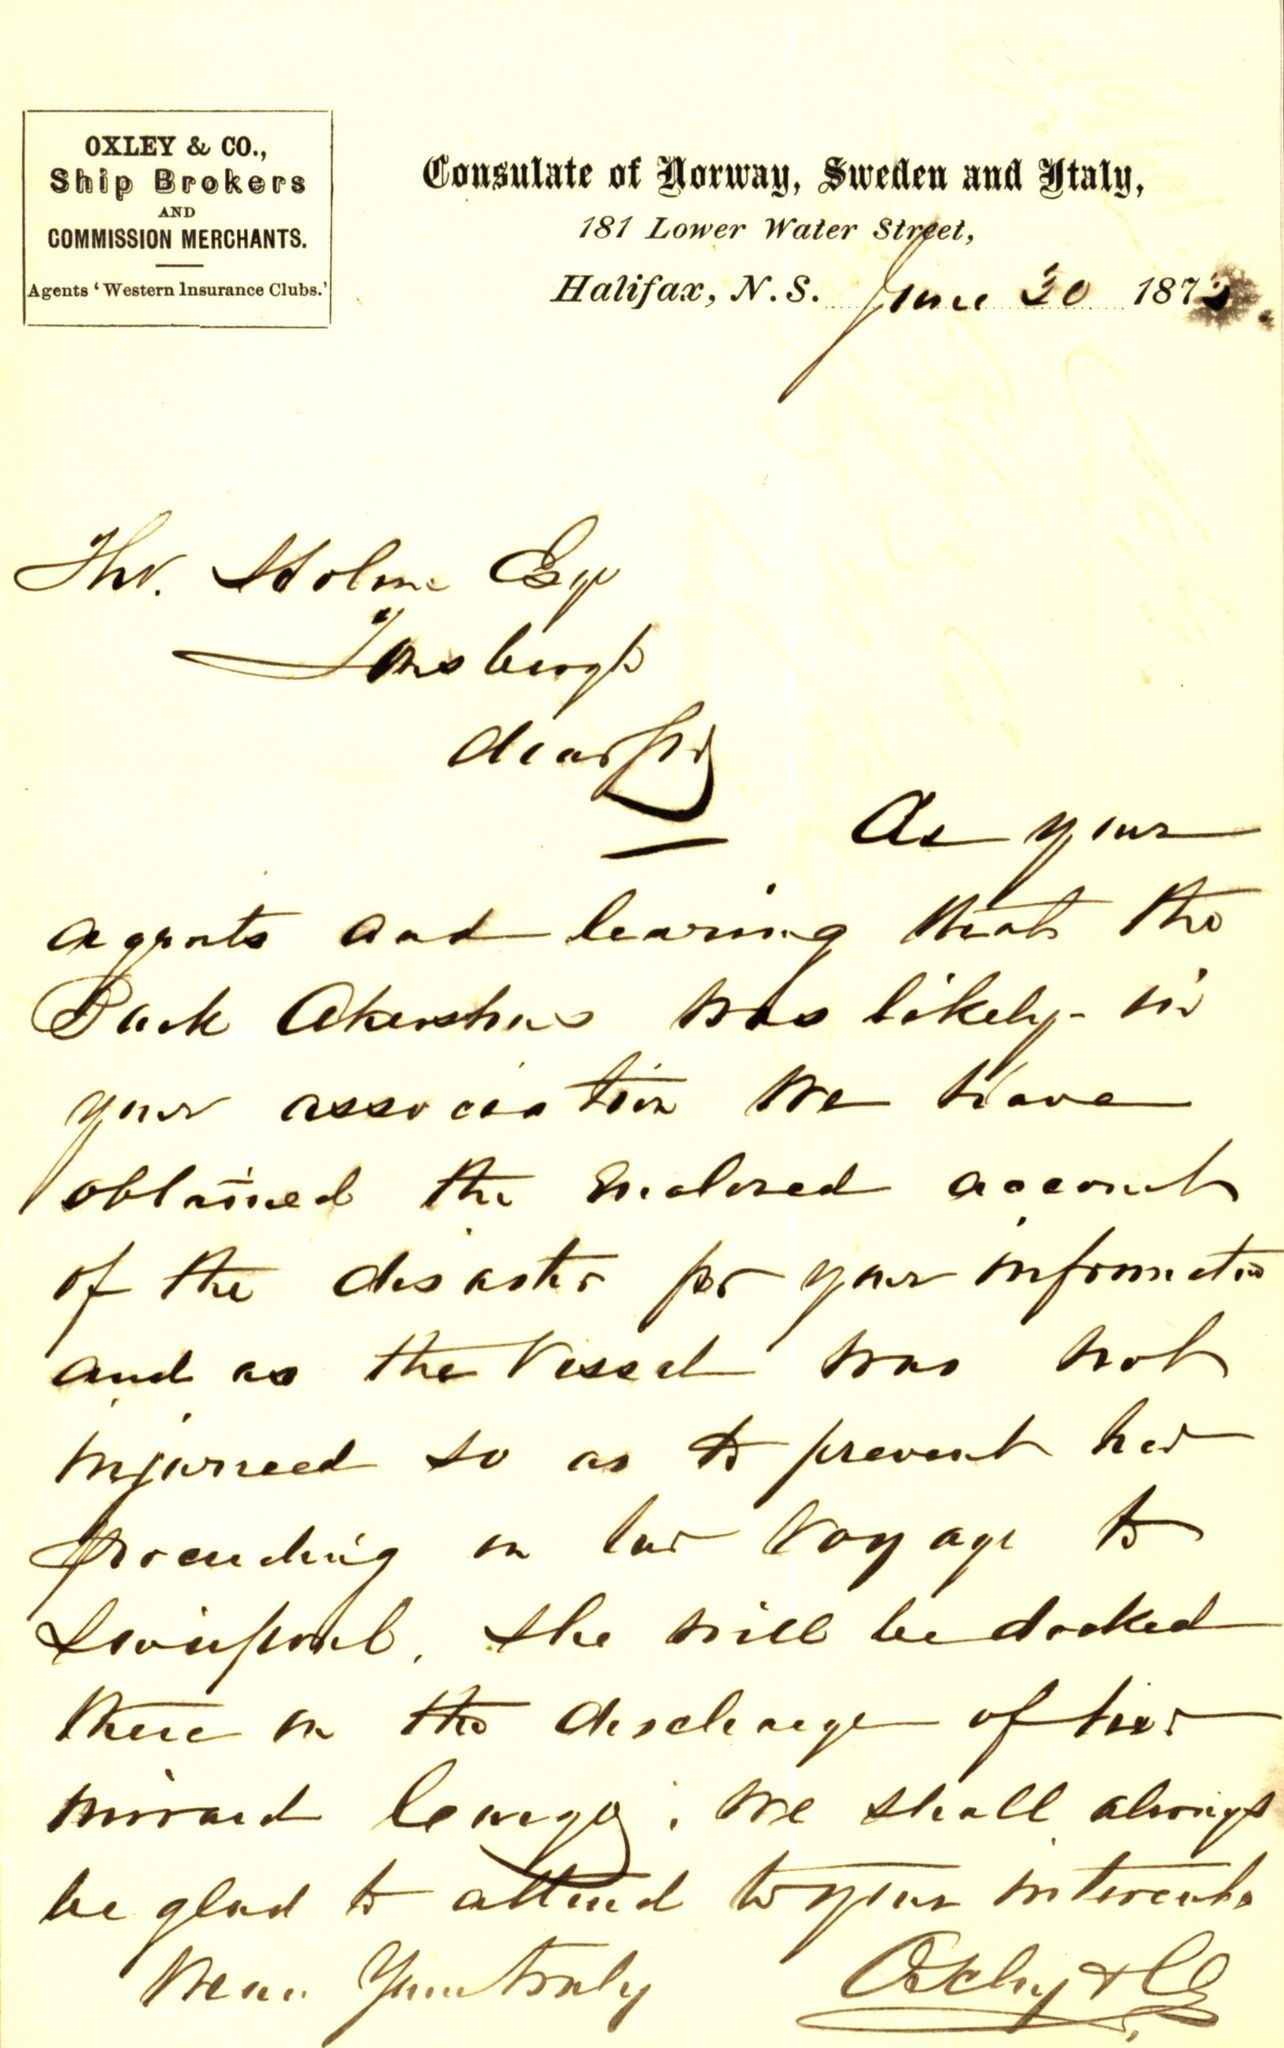 OXLEY & CO.,
Ship Brokers
AND
COMMISSION MERCHANTS.
Agents 'Western Insurance Clubs.'
Consulate of Norway, Sweden and Italy,
181 Lower Water Street,
Halifax, N.S. June 20 187
Thv. Holme Esqr
Tonsbergh
dear Sir
As your
agents and learning that the
Bark Akershus was likely in
your association we have
obtained the enclosed account
of the disaster for your information
and as the Vessel was not
injureed so as to prevent her
proceeding on her Voyage to
Liverpool. She will be docked
there on the discharge of her
inward Cargo. We shall always
be glad to attend to your interests
We are Yours truly Oxley & Co